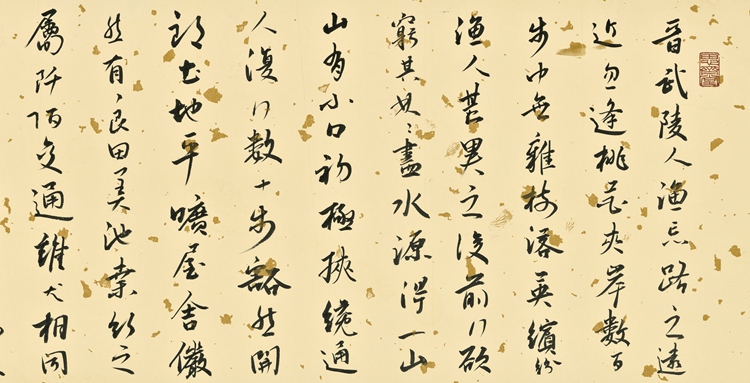 晉武陵人漁忘路之遠
近忽逢桃花夾岸數百
步中無雜樹落英繽紛
漁人甚異之復前行欲
窮其林〻盡水源得一山
山有小口初極狹纔通
人復行數十步豁然開
朗土地平曠屋舍儼
然有良田美池桑竹之
屬阡陌交通雞犬相聞